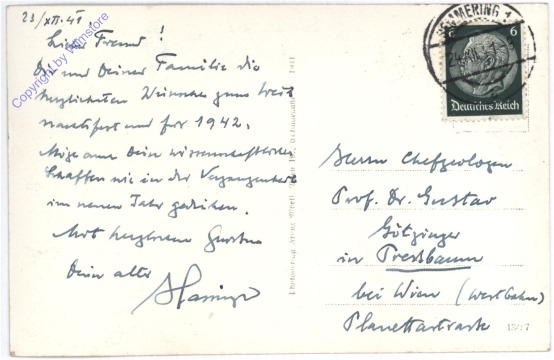 23/XII. 41
Lieber Freund!
Dir und Deiner Familie die
herzlichsten Wünsche zum Weih
nachtsfest und für 1942.
Möge auch Dein wissenschaftliches
Schaffen wie in der Vergangenheit
im neuen Jahr gedeihen.
Mit herzlichen Grüßen
Dein alter
Copyright by Wimstore
SEMMERING 1
6 6
Deutsches Reich
Herrn Chefgeologen
Prof. Dr. Gustav
Götzinger
in Pressbaum
bei Wien (Westbahn)